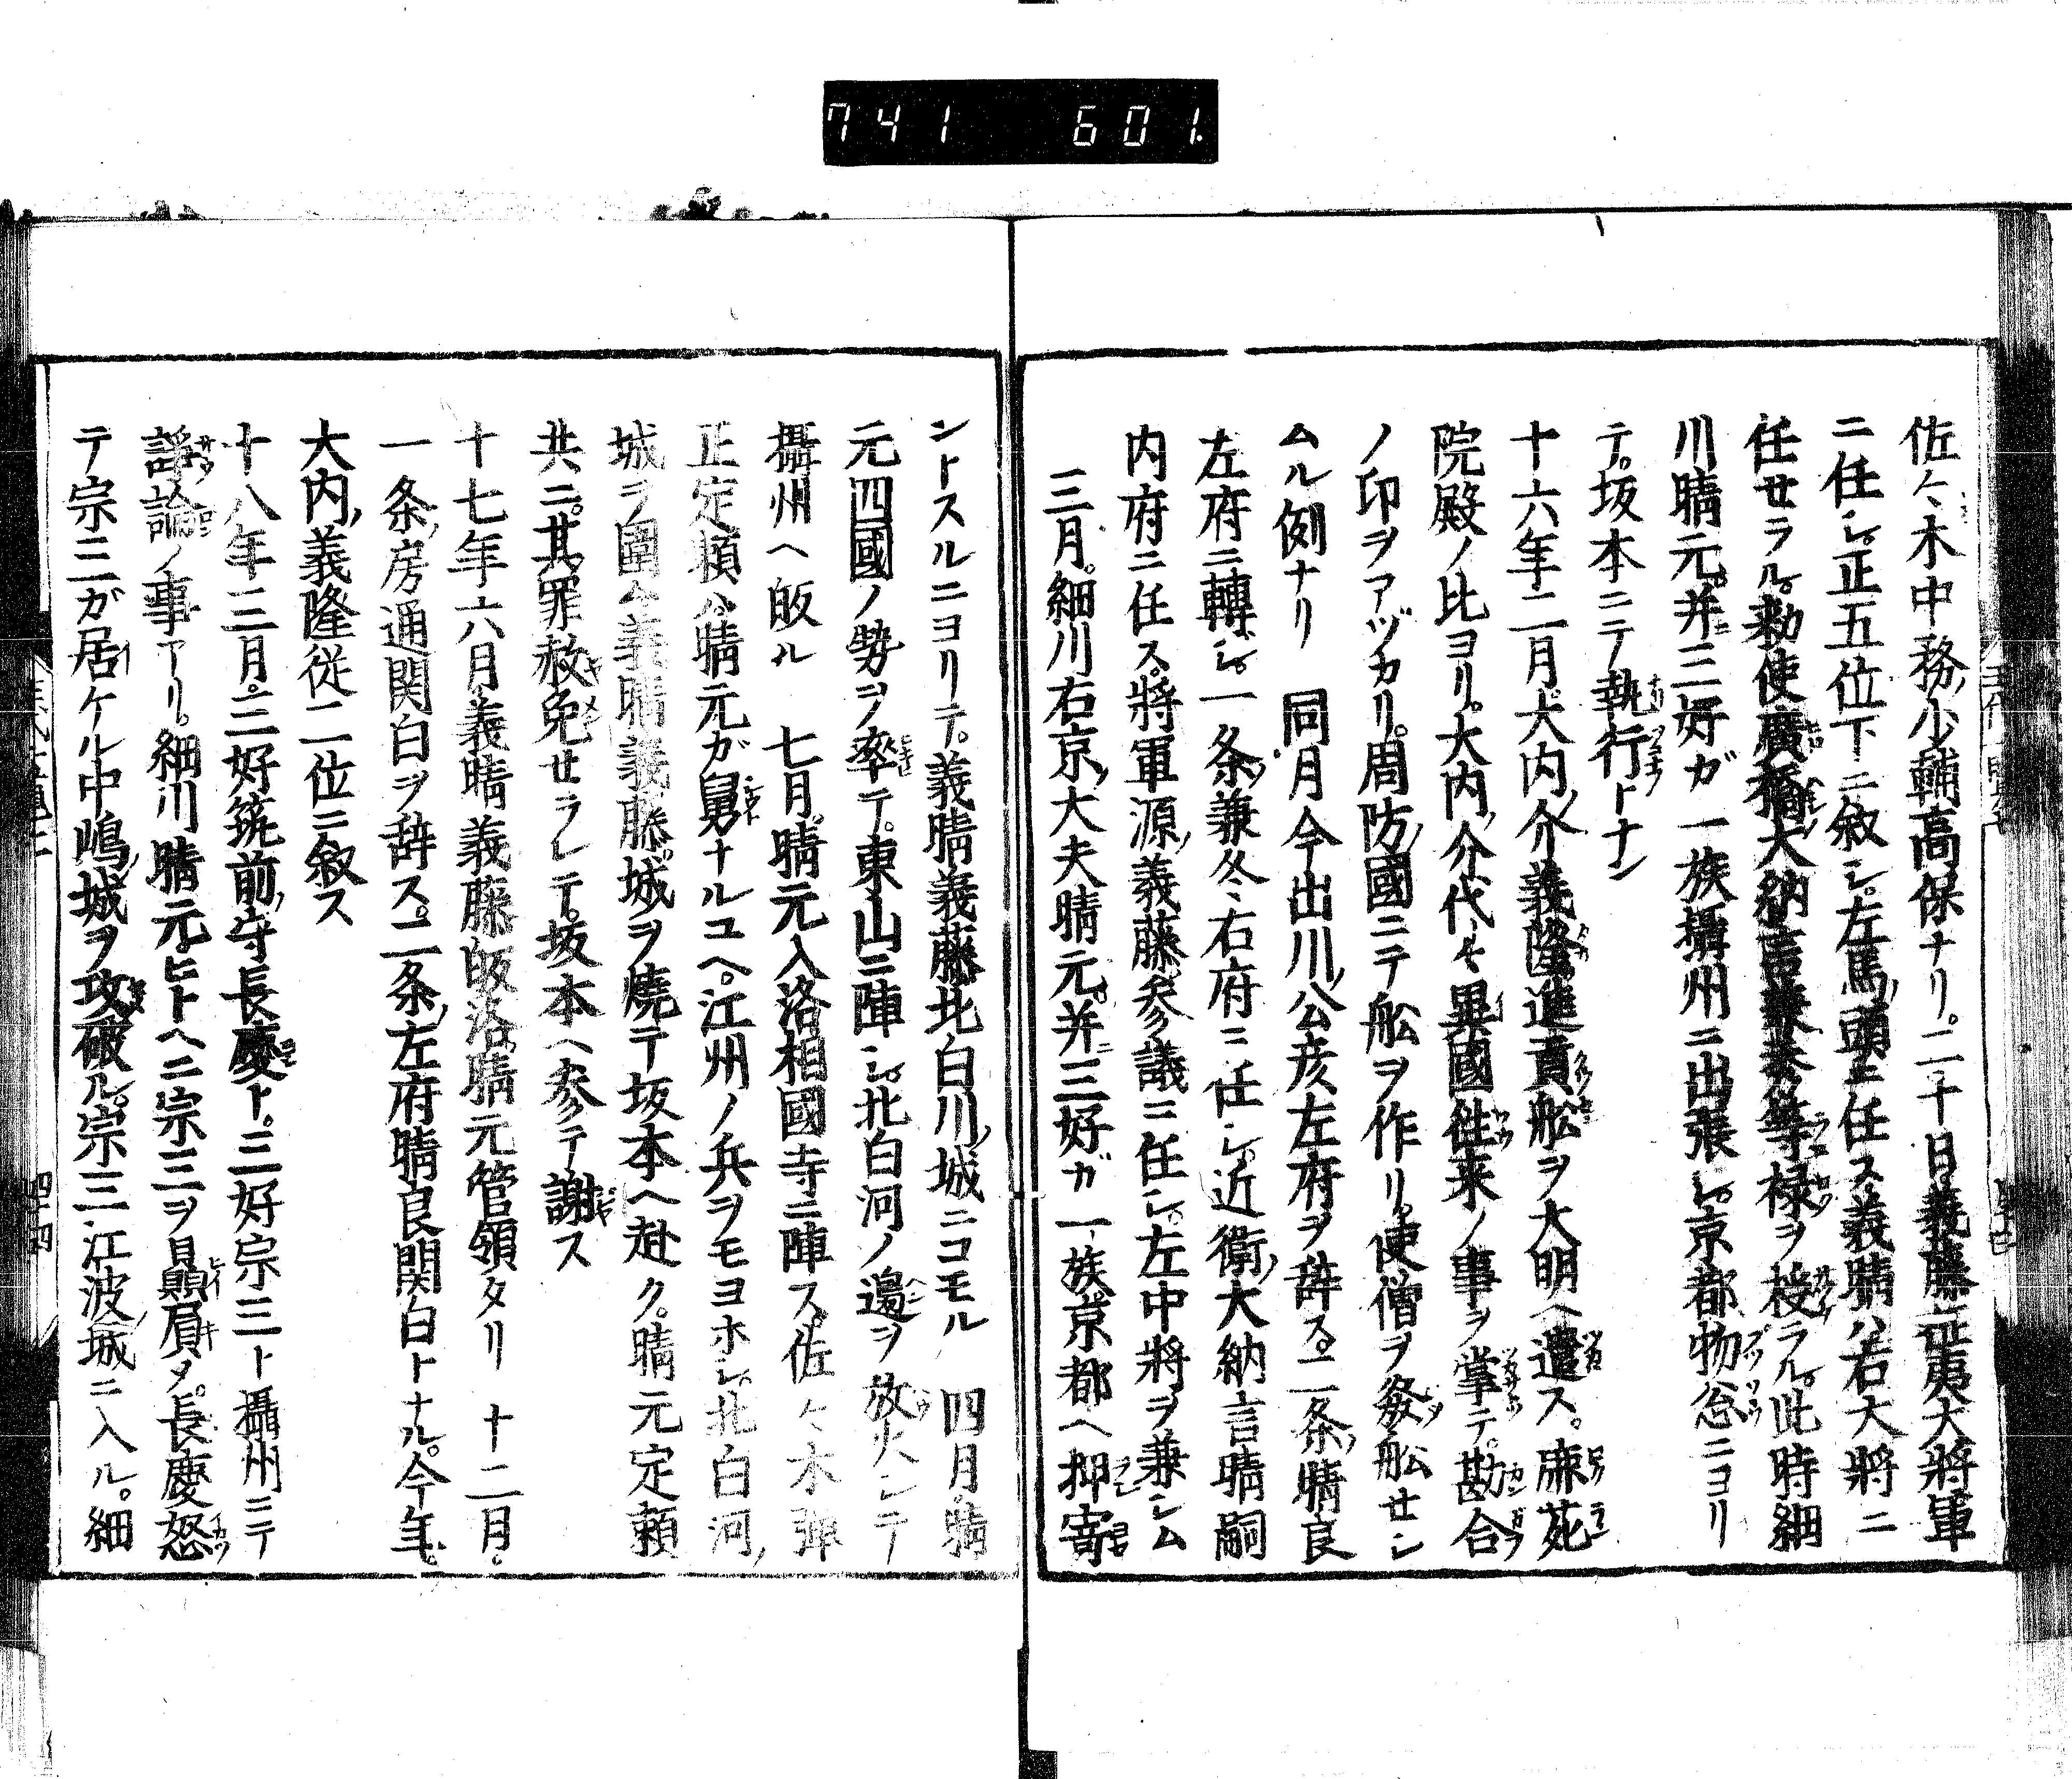 741 601
佐々木中務少輔高保ナリ。二十日。義藤征夷大將軍
ニ任シ。正五位下ニ敘シ。左馬頭ニ任ス。義晴ハ右大將ニ
任セラル。勅使廣橋大納言兼秀等禄ヲ授ラル。此時細
川晴元。并ニ三好ガ一族攝州ニ出張シ。京都物忩ニヨリ
テ。坂本ニテ執行トナン
十六年二月。大内介義隆進貢舩ヲ大明ヘ遣ス。鹿苑
院殿ノ比ヨリ。大内介代々異國往来ノ事ヲ掌テ。勘合
ノ印ヲアヅカリ。周防國ニテ舩ヲ作リ。使僧ヲ發舩セシ
ムル例ナリ 同月今出川公彦左府ヲ辞ス。二条晴良
左府ニ轉シ。一条兼冬右府ニ任シ。近衛大納言晴嗣
内府ニ任ス。將軍源義藤參議ニ任シ。左中將ヲ兼シム
三月。細川右京大夫晴元。并ニ三好ガ一族京都ヘ押寄
ントスルニヨリテ。義晴義藤北白川城ニコモル 四月。晴
元四國ノ勢ヲ率テ。東山ニ陣シ。北白河ノ邊ヲ放火シテ
攝州ヘ皈ル 七月。晴元入洛相國寺ニ陣ス。佐々木弾
正定頼ハ。晴元ガ舅ナルユヘ。江州ノ兵ヲモヨホシ。北白河
城ヲ圍ム義晴義藤。城ヲ燒テ坂本ヘ赴ク。晴元定頼
共ニ。其罪赦免セラレテ。坂本ヘ參テ謝ス
十七年六月。義晴義藤皈洛。晴元管領タリ 十二月。
一条房通関白ヲ辞ス。二条左府晴良関白トナル。今年。
大内義隆従二位ニ敘ス
十八年三月。三好筑前守長慶ト。三好宗三ト攝州ニテ
諍論ノ事アリ。細川晴元ヒトヘニ宗三ヲ贔屓タ。長慶怒
テ宗三ガ居ケル中嶋城ヲ攻破ル。宗三江波城ニ入ル。細